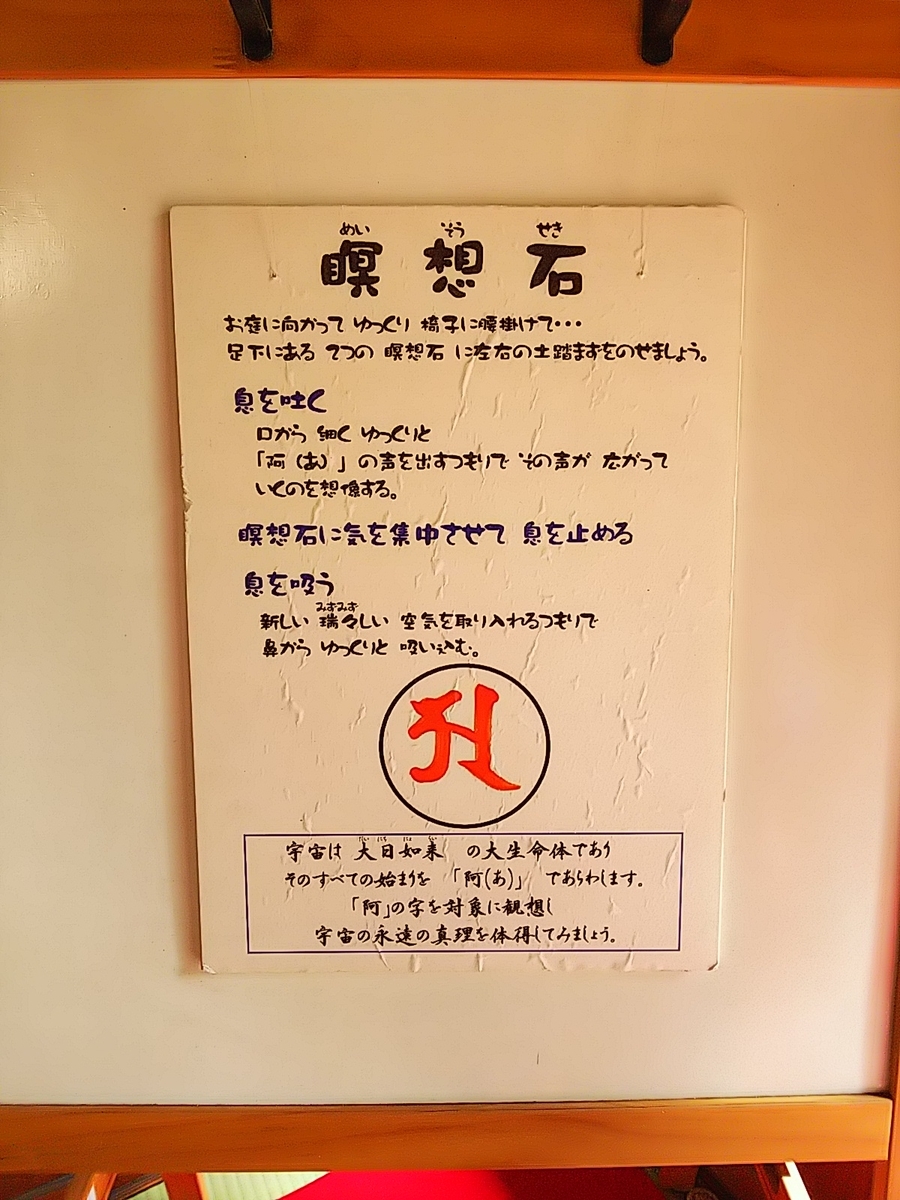 めい そう せき
瞑 想 石
お庭に向かって ゆっくり 椅子に腰掛けて・・・
足下にある 2つの 瞑想石 に左右の土踏まずをのせましょう。
息を吐く
口から 細く ゆっくりと
「阿 (あ) 」の声を出すつもりで その声が 広がって
いくのを想像する。
瞑想石に気を集中させて 息を止める
息を吸う
みずみず
新しい 瑞々しい 空気を取り入れるつもりで
鼻から ゆっくりと 吸い込む。
𑖀
だい にち にょ らい
宇宙は 大日如来 の大生命体であり
そのすべての始まりを 「阿(あ)」 であらわします。
「阿」の字を対象に観想し
宇宙の永遠の真理を体得してみましょう。